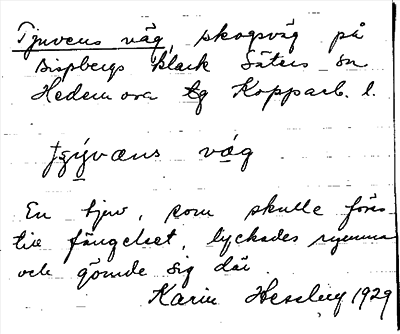 Tjuvens väg, skogsväg på
Bispbergs klack Säters sn
Hedemora tg Kopparb. l.
väg
En tjuv, som skulle föras
till fängelset, lyckades rymma
och gömde sig där
Karin Hessling 1929